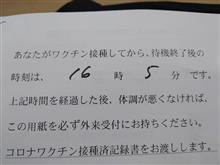 あなたがワクチン接種してから、待機終了後の
時刻は、 16 時 5 分 です。
上記時間を経過した後、体調が悪くなければ、
この用紙を必ず外来受付にお持ちください。
コロナワクチン接種済記録書をお渡しします。